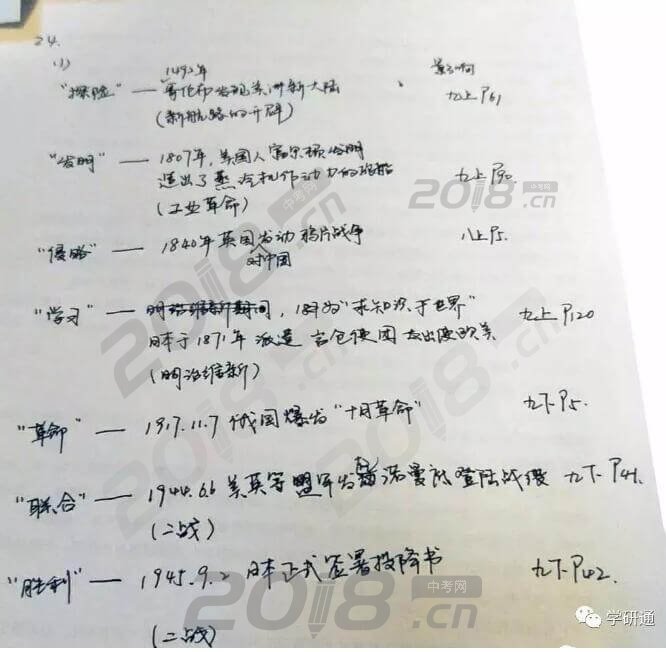 24.
(1)
1492年 影响
"探险" — 哥伦布发现美洲新大陆 九上P61
(新航路的开辟)
"发明" — 1807年,美国人富尔顿发明
造出了蒸汽机作动力的轮船 九上P90
(工业革命)
"侵略" — 1840年英国发动鸦片战争 八上P5.
对中国
"学习" — 明治维新期间, 为"求知识于世界" 九上P120
日本于1871年派遣岩仓使团去出使欧美
(明治维新)
"革命" — 1917.11.7 俄国爆发"十月革命" 九下P5.
"联合" — 1944.6.6 美英等盟军发动诺曼底登陆战役 九下P41.
(二战)
"胜利" — 1945.9.2 日本正式签署投降书 九下P42.
(二战)
2018.cn
中考网
2018.cn
2018.cn
2018.cn
中考网
2018.cn
学研通